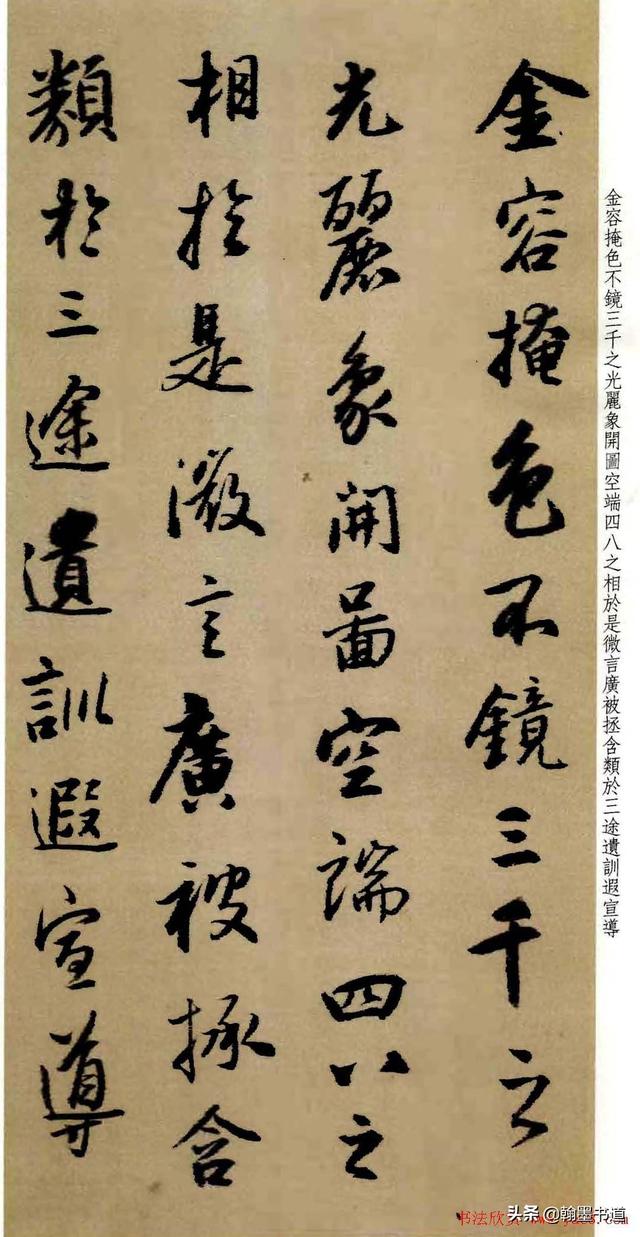 金容掩色不鏡三千之
光麗象開圖空端四八之
相於是微言廣被拯含
類於三途遺訓遐宣導
金容掩色不鏡三千之光麗象開圖空端四八之相於是微言廣被拯含類於三途遺訓遐宣導
书法欣赏
头条 @翰墨书道